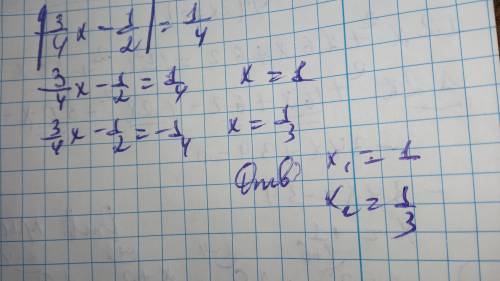 |3/4 x - 1/2| = 1/4
3/4 x - 1/2 = 1/4 x = 1
3/4 x - 1/2 = -1/4 x = 1/3
Отв x₁ = 1
x₂ = 1/3